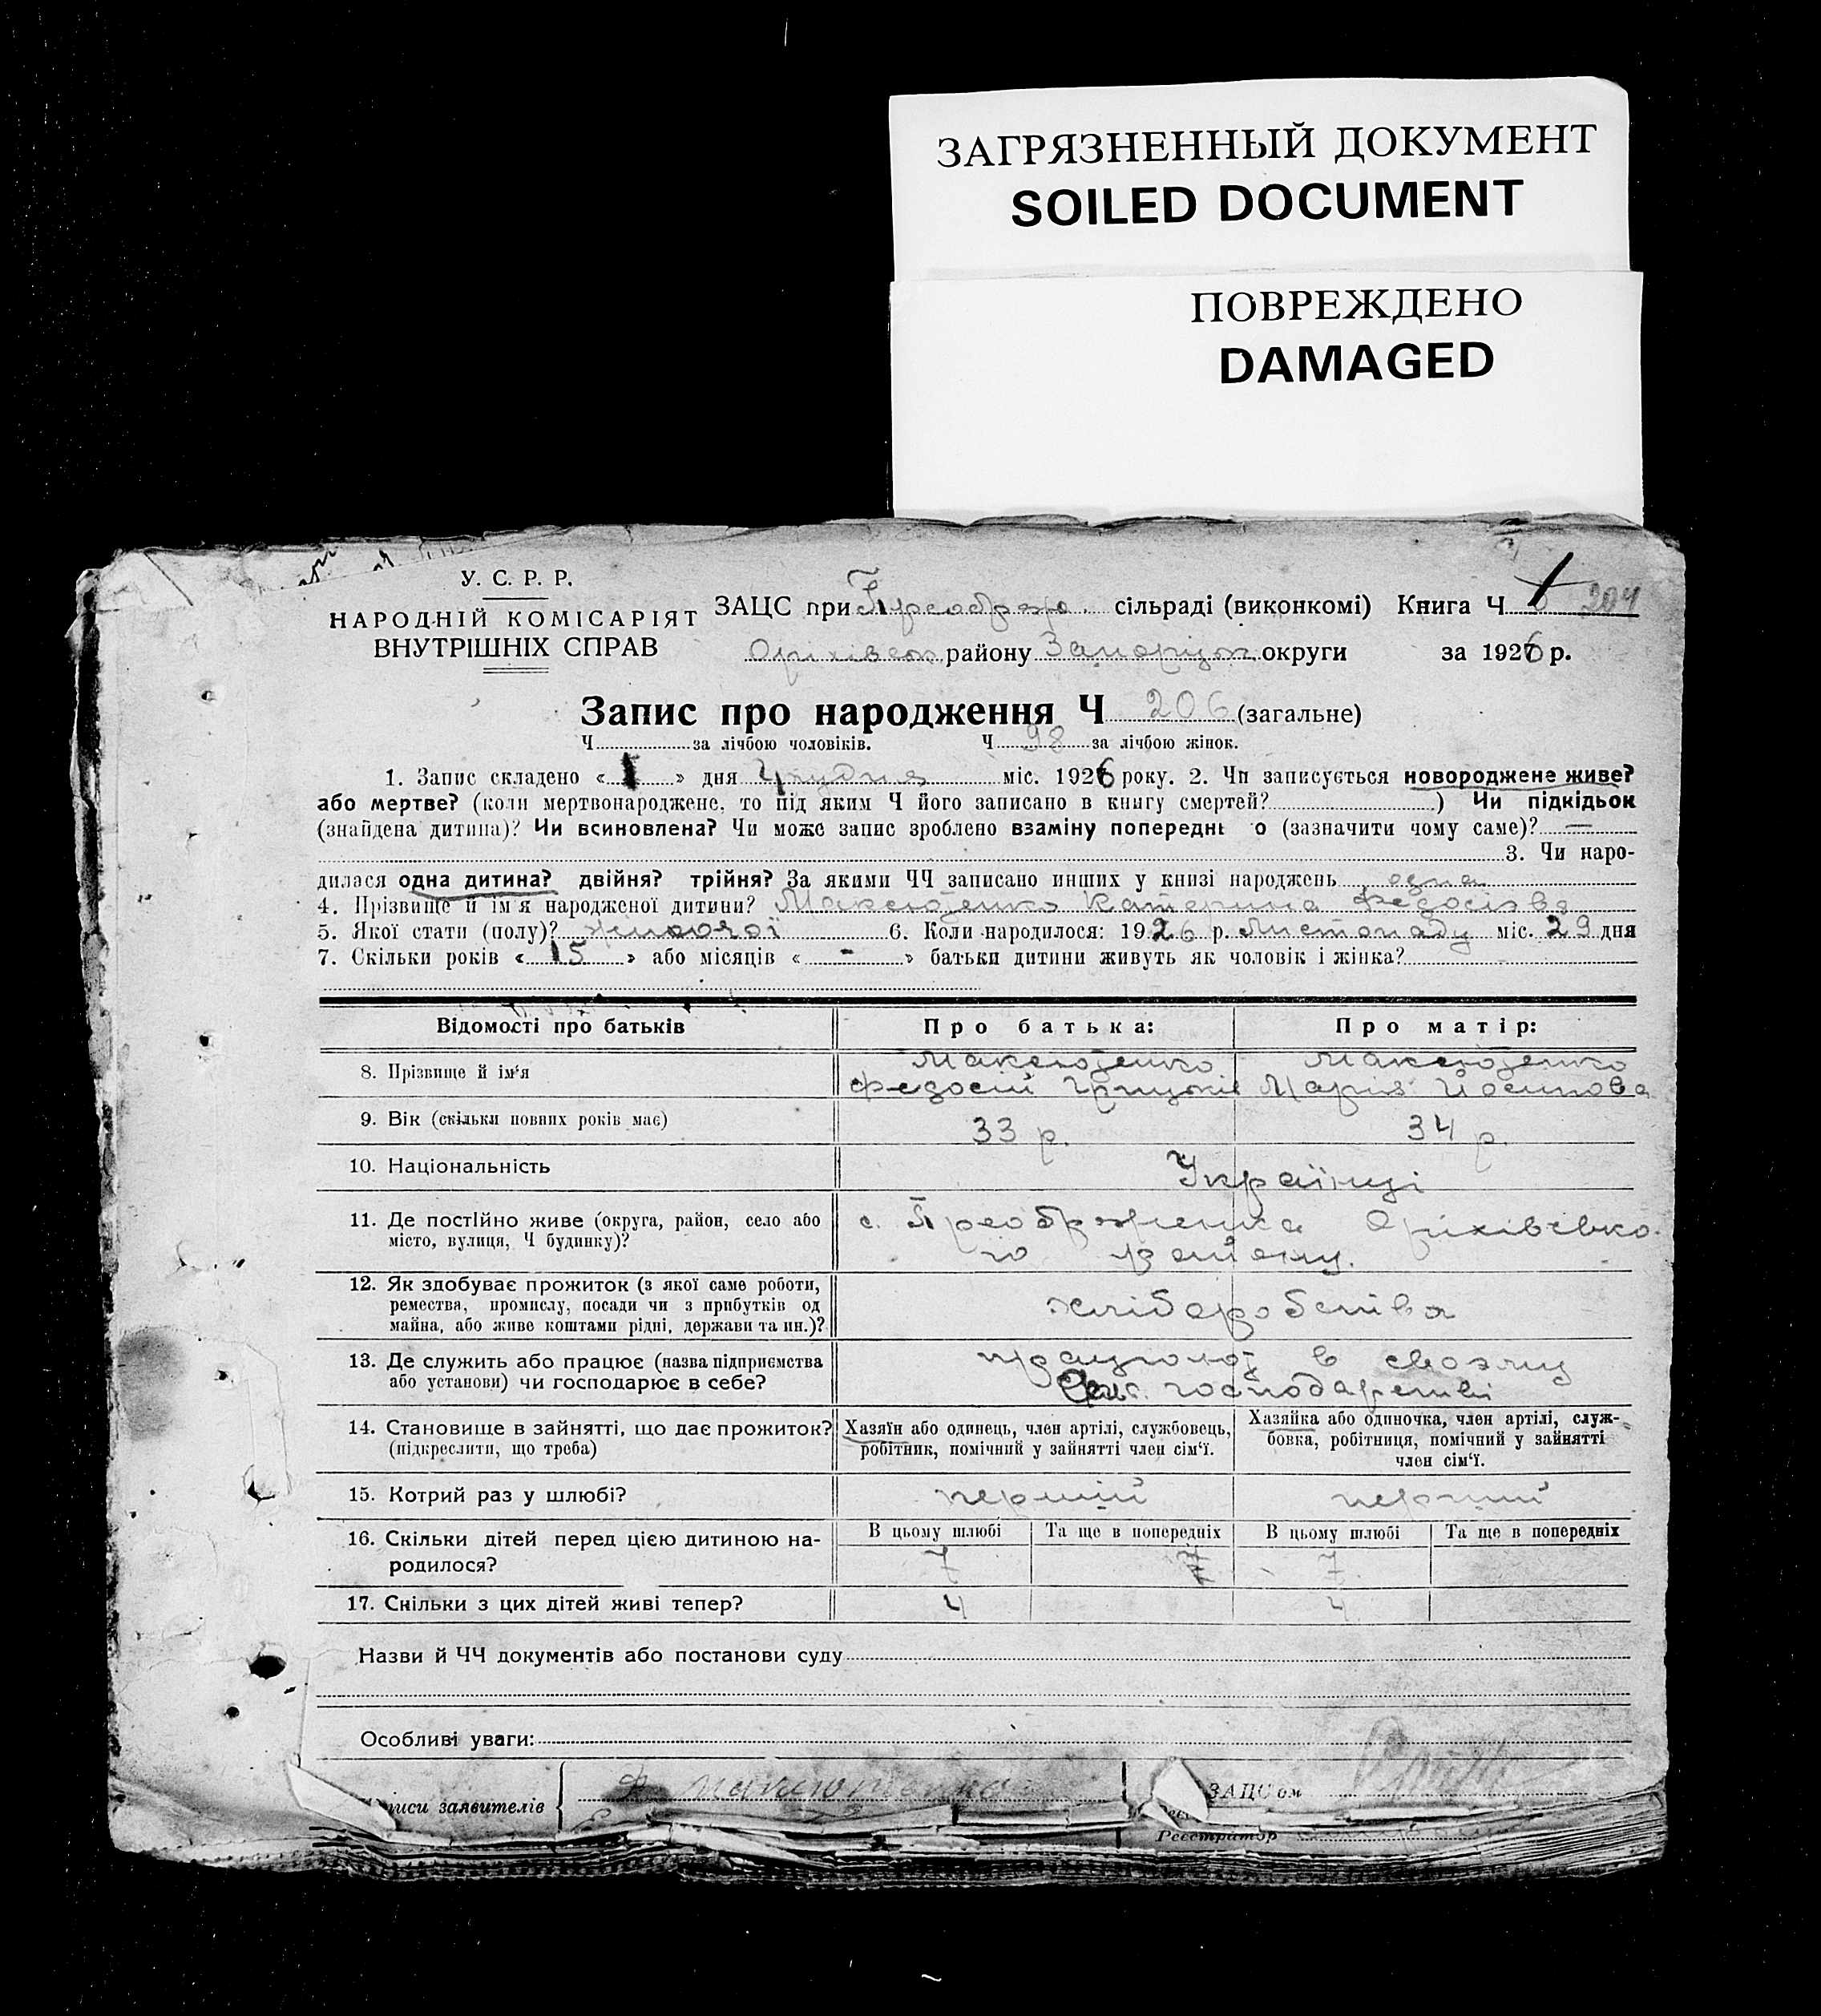 ЗАГРЯЗНЕННЫЙ ДОКУМЕНТ
SOILED DOCUMENT
ПОВРЕЖДЕНО
DAMAGED
У. С. Р. Р.
НАРОДНІЙ КОМІСАРІЯТ
ВНУТРІШНІХ СПРАВ
ЗАЦС при Преображ. сільраді (виконкомі) Книга Ч 204
Оріхівськ району Запоріжж округи за 1926 р.
Запис про народження Ч 206 (загальне)
Ч за лічбою чоловіків. Ч 98 за лічбою жінок.
1. Запис складено « 1 » дня Грудня міс. 1926 року. 2. Чи записується новороджене живе?
або мертве? (коли мертвонароджене, то під яким Ч його записано в книгу смертей? ) Чи підкідьок
(знайдена дитина)? Чи всиновлена? Чи може запис зроблено взаміну попереднь о (зазначити чому саме)? —
3. Чи наро-
дилася одна дитина? двійня? трійня? За якими ЧЧ записано инших у книзі народжень одна
4. Прізвище й ім'я народженої дитини? Максютенко Катерина Федосієва
5. Якої стати (полу)? жіночої 6. Коли народилося: 1926 р. Листопаду міс. 29 дня
7. Скільки років « 15 » або місяців « - » батьки дитини живуть як чоловік і жінка?
Відомості про батьків Про батька: Про матір:
8. Прізвище й ім'я Максютенко Федосій Грицьків Максютенко Марія Йосипова
9. Вік (скільки повних років має) 33 р. 34 р.
10. Національність Українці
11. Де постійно живе (округа, район, село або с. Преображенка Оріхівсько-
місто, вулиця, Ч будинку)? го району.
12. Як здобуває прожиток (з якої саме роботи,
ремества, промислу, посади чи з прибутків од хліборобства
майна, або живе коштами рідні, держави та ин.)?
13. Де служить або працює (назва підприємства працюют в своэму
або установи) чи господарює в себе? господарстві
14. Становище в зайнятті, що дає прожиток? Хазяїн або одинець, член артілі, службовець, Хазяйка або одиночка, член артілі, служ-
(підкреслити, що треба) робітник, помічний у зайнятті член сім'ї. бовка, робітниця, помічний у зайнятті
член сім'ї.
15. Котрий раз у шлюбі? перший перший
16. Скільки дітей перед цією дитиною на- В цьому шлюбі Та ще в попередніх В цьому шлюбі Та ще в попередніх
родилося? 7 7
17. Скільки з цих дітей живі тепер? 4 4
Назви й ЧЧ документів або постанови суду
Особливі уваги:
писи заявителів Ф Максютенко ЗАЦС ом
Реєстратор